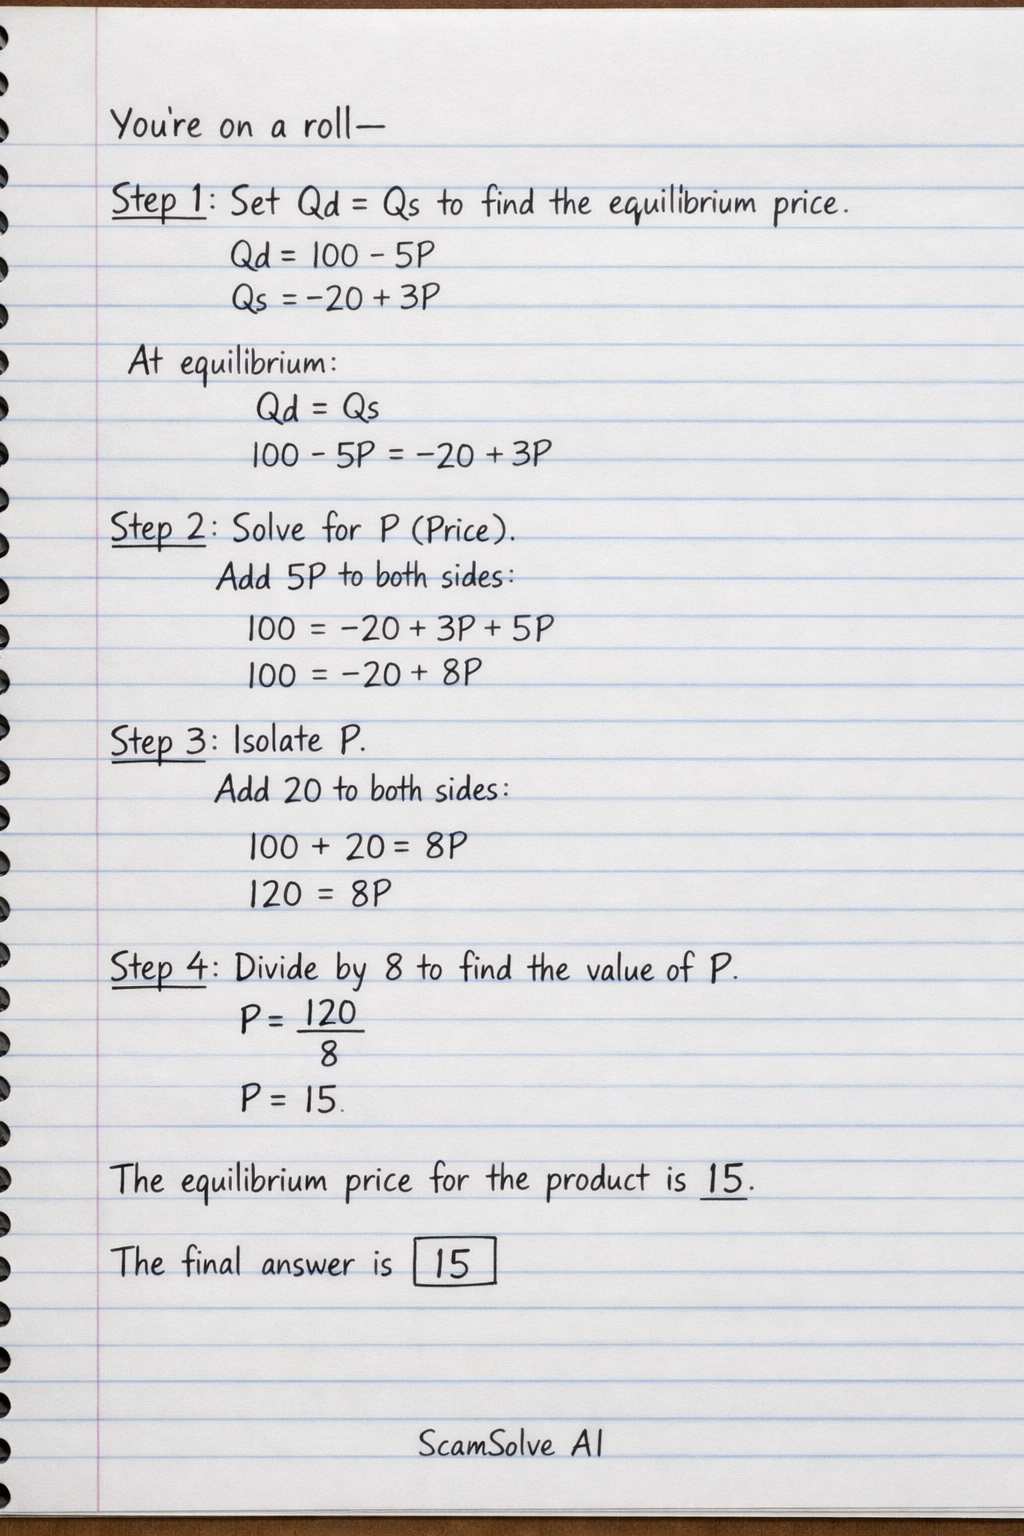 You're on a roll—
Step 1: Set Qd = Qs to find the equilibrium price.
Qd = 100 - 5P
Qs = -20 + 3P
At equilibrium:
Qd = Qs
100 - 5P = -20 + 3P
Step 2: Solve for P (Price).
Add 5P to both sides:
100 = -20 + 3P + 5P
100 = -20 + 8P
Step 3: Isolate P.
Add 20 to both sides:
100 + 20 = 8P
120 = 8P
Step 4: Divide by 8 to find the value of P.
P = 120
8
P = 15.
The equilibrium price for the product is 15.
The final answer is 15
ScamSolve AI